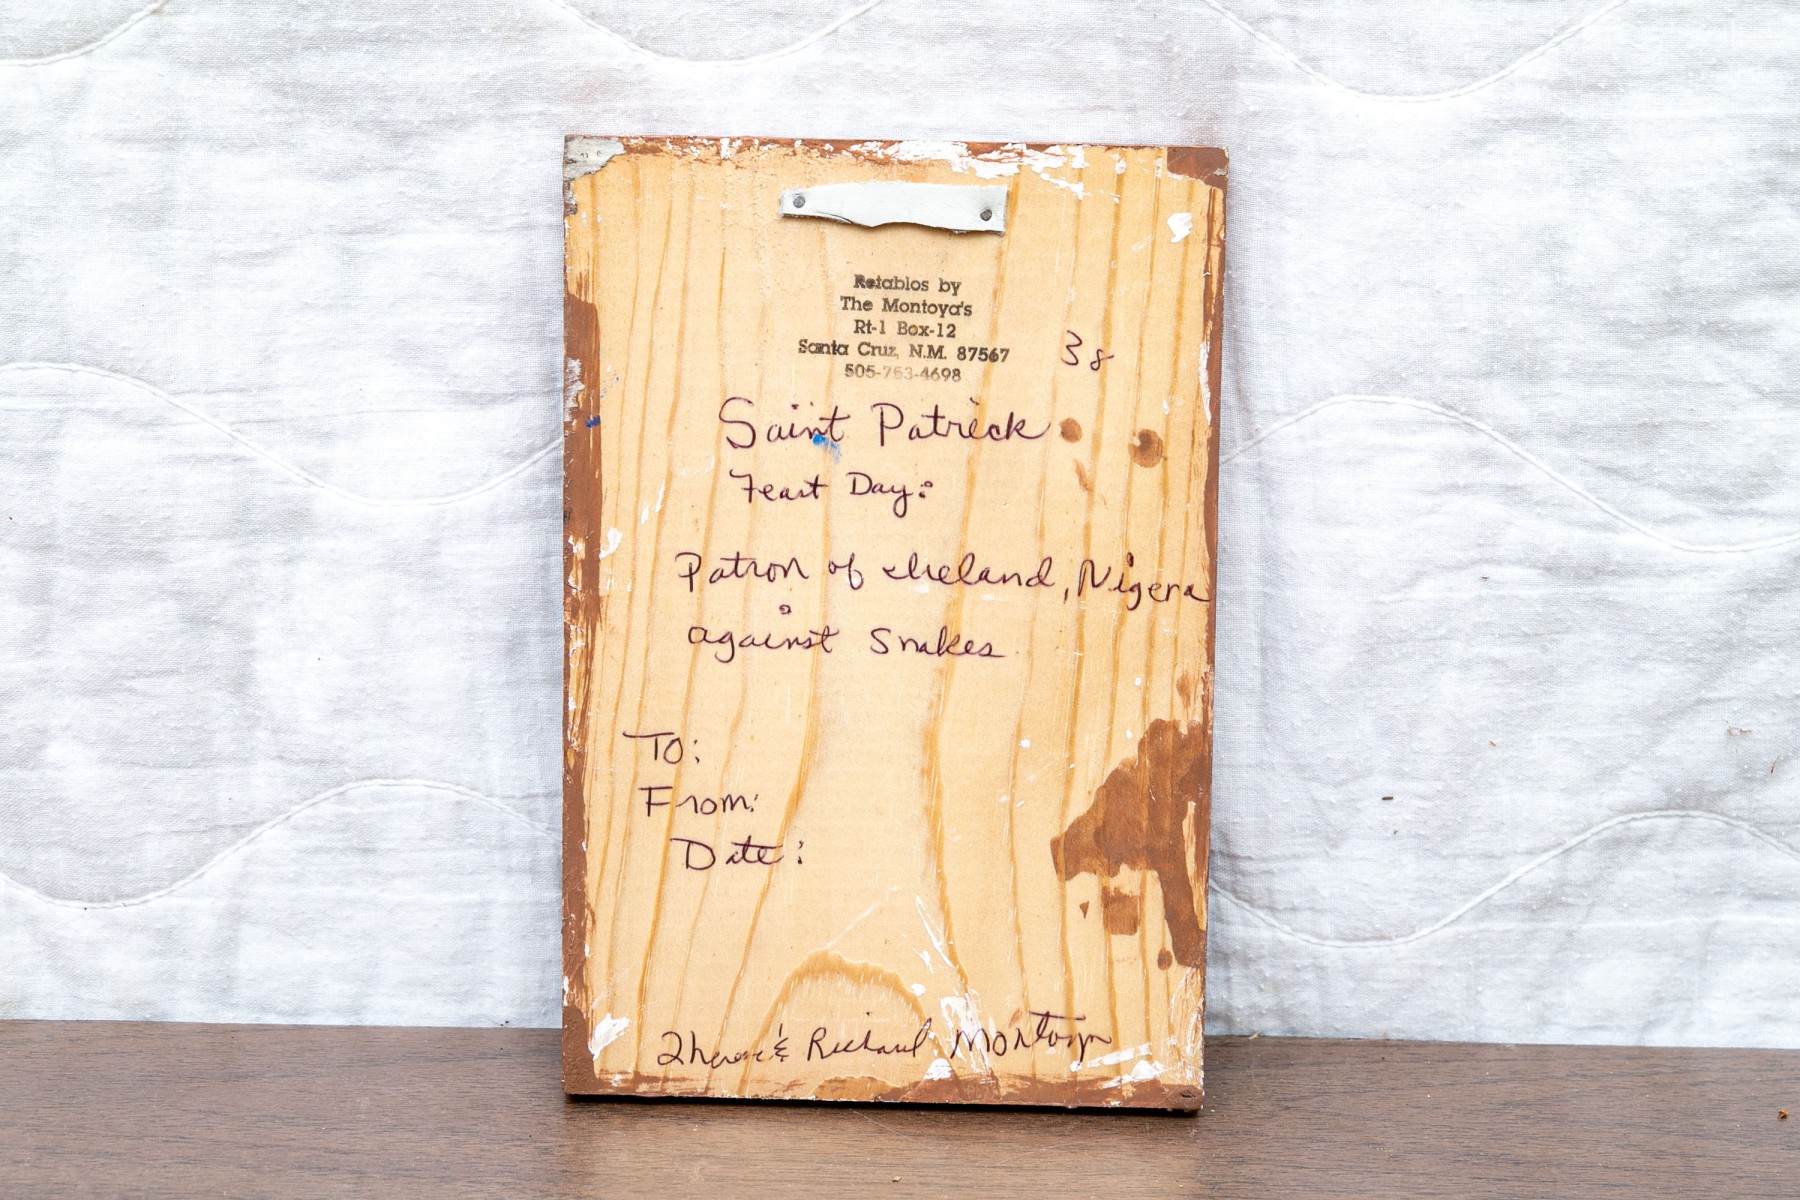 Retablos by
The Montoya's
Rt-1 Box-12
Santa Cruz, N.M. 87567
505-753-4698
38
Saint Patrick
Feast Day:
Patron of Ireland, Nigera
against Snakes
To:
From:
Date:
& Richard Montoya